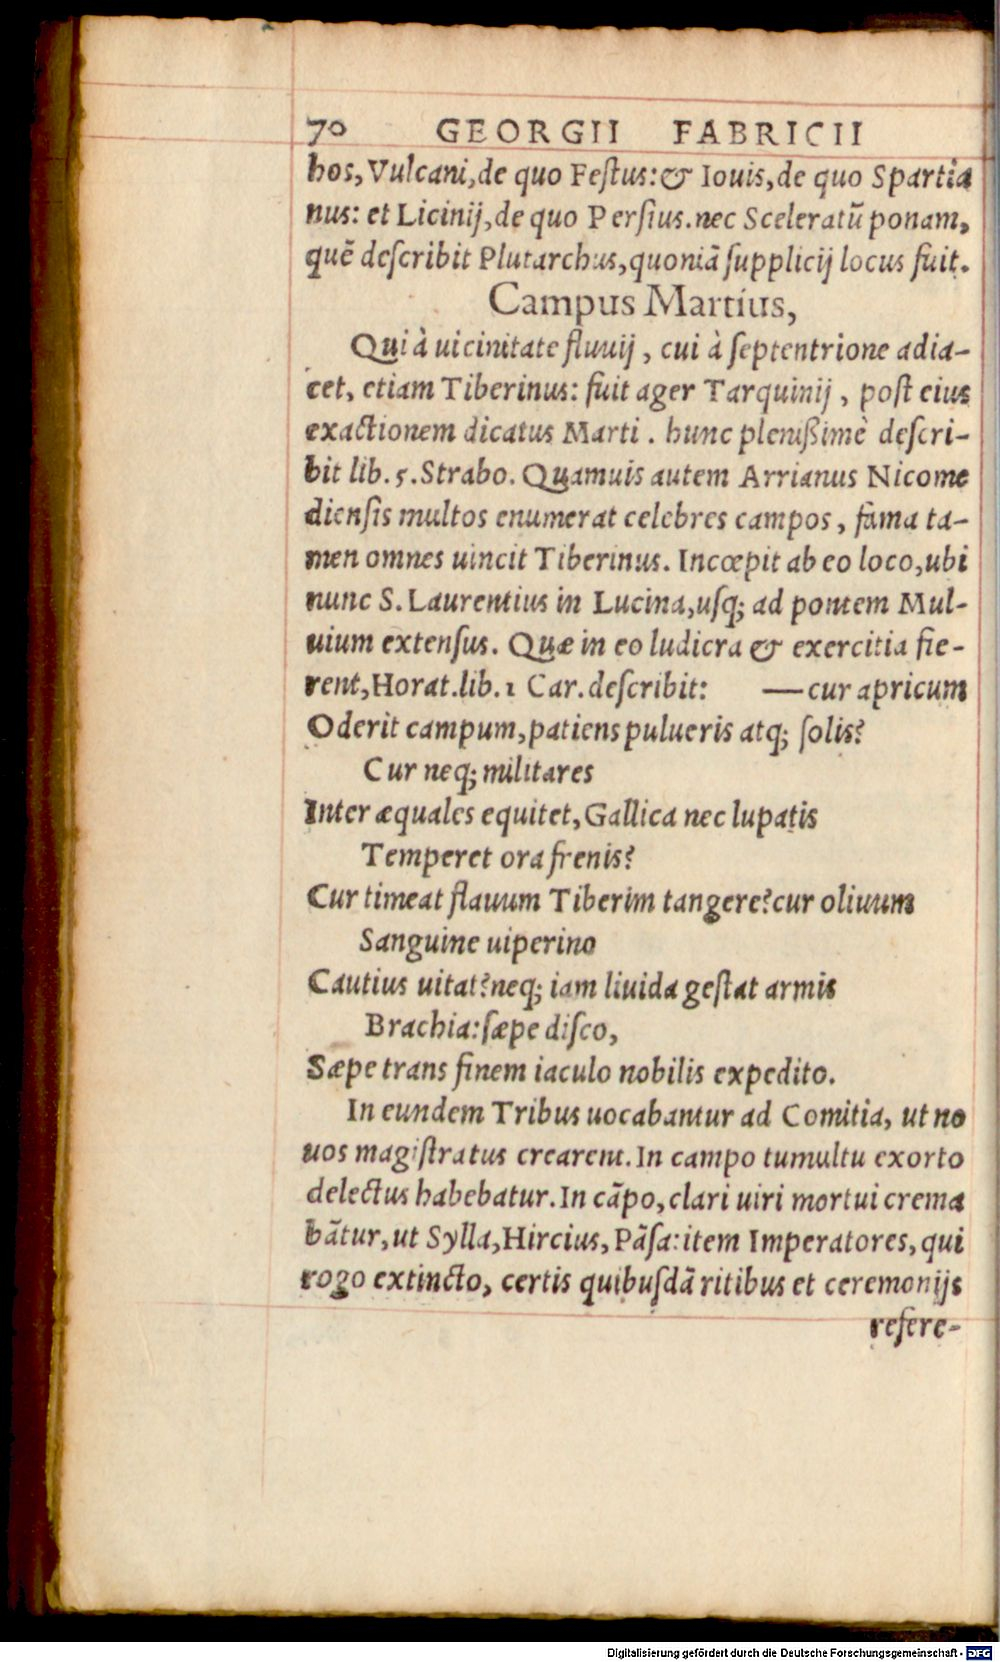 70 GEORGII FABRICII
hos, Vulcani, de quo Feſtus: & Iouis, de quo Spartia
nus: et Licinij, de quo Perſius. nec Sceleratū ponam,
quē deſcribit Plutarchus, quoniā ſupplicij locus fuit.
Campus Martius,
Qui à uicinitate fluuij, cui à ſeptentrione adia-
cet, etiam Tiberinus: fuit ager Tarquinij, poſt eius
exactionem dicatus Marti. hunc pleniſsimè deſcri-
bit lib. 5. Strabo. Quamuis autem Arrianus Nicome
dienſis multos enumerat celebres campos, fama ta-
men omnes uincit Tiberinus. Incœpit ab eo loco, ubi
nunc S. Laurentius in Lucina, uſq; ad pontem Mul-
uium extenſus. Quæ in eo ludicra & exercitia fie-
rent, Horat. lib. 1 Car. deſcribit: — cur apricum
Oderit campum, patiens pulueris atq; ſolis?
Cur neq; militares
Inter æquales equitet, Gallica nec lupatis
Temperet ora frenis?
Cur timeat flauum Tiberim tangere? cur oliuum
Sanguine uiperino
Cautius uitat? neq; iam liuida geſtat armis
Brachia: ſæpe diſco,
Sæpe trans finem iaculo nobilis expedito.
In eundem Tribus uocabantur ad Comitia, ut no
uos magiſtratus crearent. In campo tumultu exorto
delectus habebatur. In cāpo, clari uiri mortui crema
bātur, ut Sylla, Hircius, Pāſa: item Imperatores, qui
rogo extincto, certis quibuſdā ritibus et ceremonijs
refere-
Digitalisierung gefördert durch die Deutsche Forschungsgemeinschaft - DFG